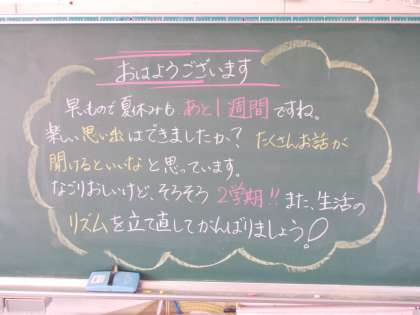 おはようございます
早いもので夏休みも あと1週間ですね。
楽しい思い出はできましたか? たくさんお話が
聞けるといいなと思っています。
なごりおしいけど、そろそろ2学期!! また、生活の
リズムを立て直してがんばりましょう!